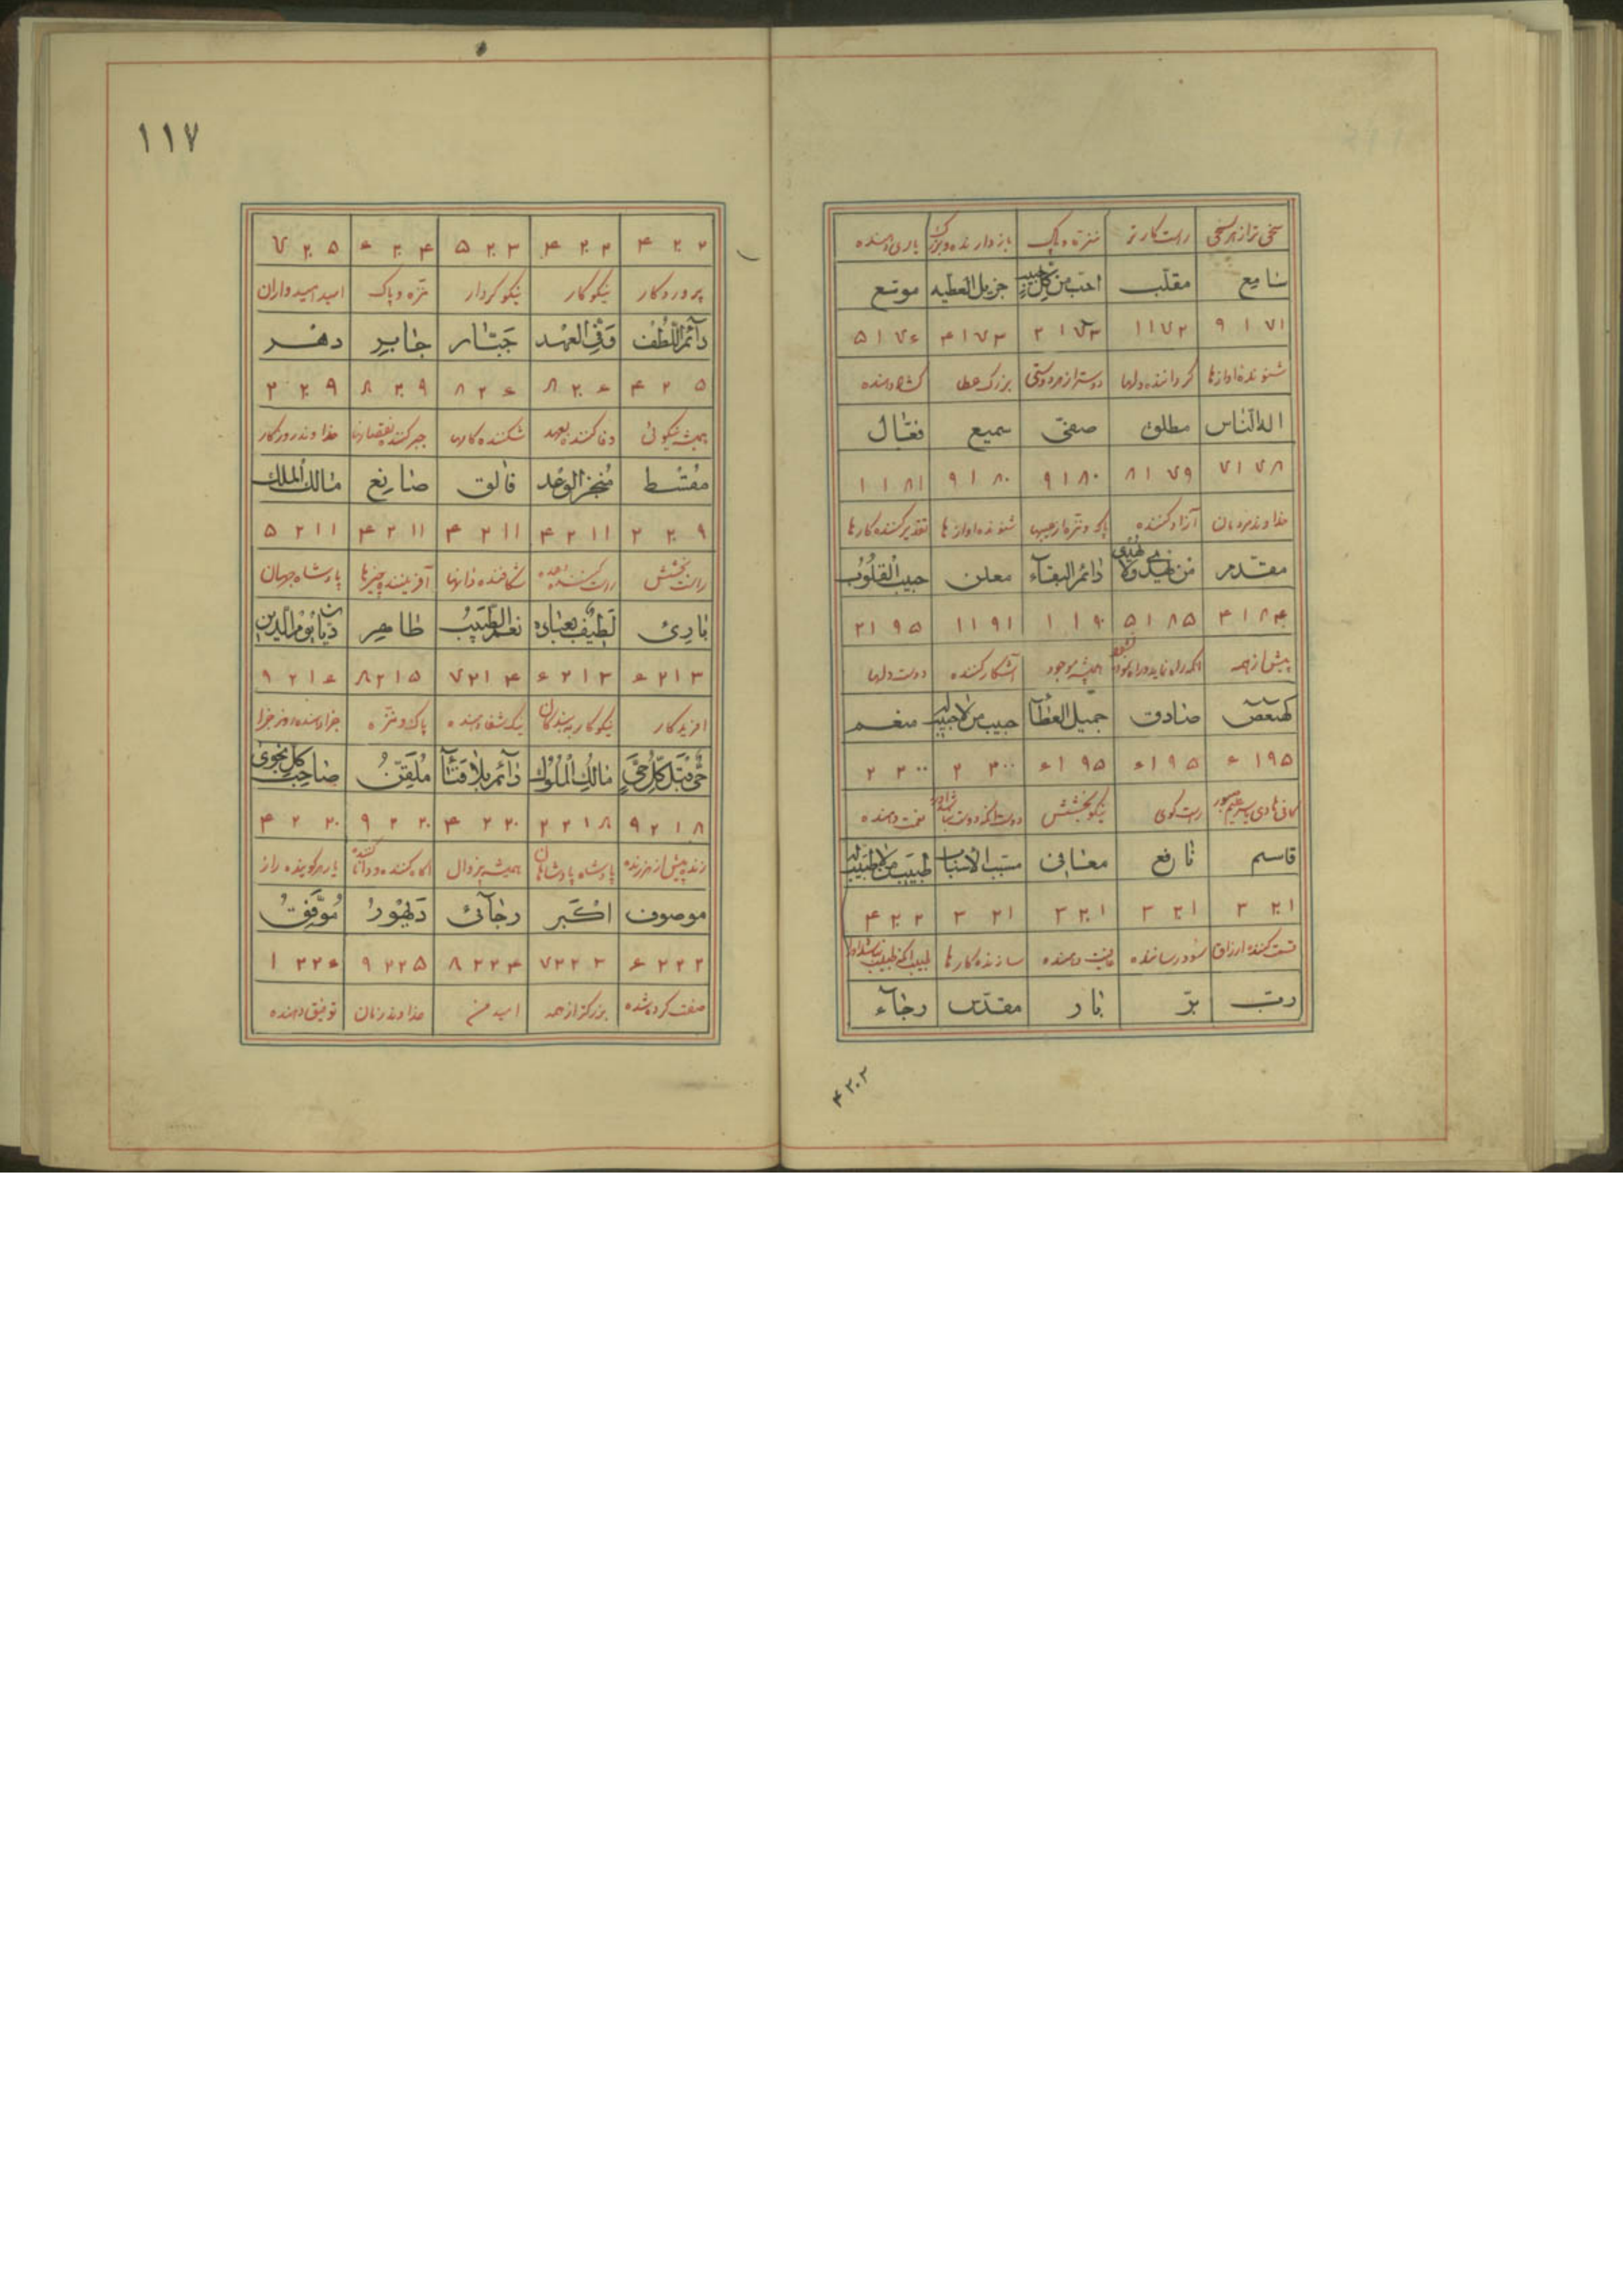 سخی تر از هر سخی راست کارتر منزه و پاک باز دارنده و بزرگ یاری دهنده
سامع مقلب احب من کل حبیب جزیل العطیه موسع
۹ ۱ ۷۱ ۱۱ ۷۲ ۲ ۱ ۷۳ ۴ ۱ ۷۳ ۵ ۱ ۷۶
شنونده اوازها گرداننده دلها دوستر از هر دوستی بزرک عطا کشاد دهنده
اله الناس مطلق صفی سمیع فعال
۷ ۱ ۷۸ ۸ ۱ ۷۹ ۹ ۱ ۸۰ ۹ ۱ ۸۰ ۱ ۱ ۸۱
خداوند مردمان آزاد کننده پاک و منزه از عیبها شنونده اوازها تقدیر کننده کارها
مقدم من یهدی ولا یهدی دائم البقاء معلن حبیب القلوب
۴ ۱ ۸۴ ۵ ۱ ۸۵ ۱ ۱ ۹۰ ۱ ۱ ۹۱ ۲ ۱ ۹۵
پیش از همه همیشه موجود آشکار کننده دوست دلها
کهیعص صادق جمیل العطآ حبیب من لا حبیب له منعم
۶ ۱ ۹۵ ۶ ۱ ۹۵ ۶ ۱ ۹۵ ۲ ۲۰۰ ۲ ۲۰۰
راست کوی نیکو بخشش نعمت دهنده
قاسم نافع معافی مسبب الاسباب طبیب من لا طبیب له
۳ ۲۰۱ ۳ ۲۰۱ ۳ ۲۰۱ ۳ ۲۰۱ ۴ ۲۰۲
قسمت کننده ارزاق سود رساننده عافیت دهنده سازنده کارها
رب بر بار مقدس رجاء
۴۲۰۲
۱۱۷
۴ ۲۰۲ ۴ ۲۰۳ ۵ ۲۰۳ ۶ ۲۰۴ ۷ ۲۰۵
پروردکار نیکوکار نیکو کردار منزه و پاک امید امیدواران
دآئم اللطف وفی العهد جبار جابر دهر
۴ ۲۰۵ ۸ ۲۰۶ ۸ ۲۰۶ ۸ ۲۰۹ ۲ ۲۰۹
همیشه نیکوئی وفا کننده بعهد شکننده کارها جبر کننده نقصانها خداوند روزکار
مقسط منجز الوعد فالق صانع مالک الملک
۲ ۲۰۹ ۴ ۲۱۱ ۴ ۲۱۱ ۴ ۲۱۱ ۵ ۲۱۱
راست بخشش راست کننده وعده شکافنده دانها آفریننده چیزها پادشاه جهان
باری لطیف بعباده نعم الطبیب طاهر دیان یوم الدین
۶ ۲۱۳ ۶ ۲۱۳ ۷ ۲۱۴ ۸ ۲۱۵ ۹ ۲۱۶
افریدکار نیکوکار به بندکان نیک شفا دهنده پاک و منزه جزا دهنده روز جزا
حی قبل کل حی مالک الملوک دآئم بلا فنآ ملقن صاحب کل نجوی
۹ ۲۱۸ ۲ ۲۱۸ ۴ ۲۲۰ ۹ ۲۲۰ ۴ ۲۲۰
زنده پیش از هر زنده پادشاه پادشاهان همیشه بی زوال یار هر کوینده راز
موصوف اکبر رجآئی دیهور موفق
۶ ۲۲۲ ۷ ۲۲۳ ۸ ۲۲۴ ۹ ۲۲۵ ۱ ۲۲۶
صفت کرده شده بزرکتر از همه امید من خداوند زمان توفیق دهنده